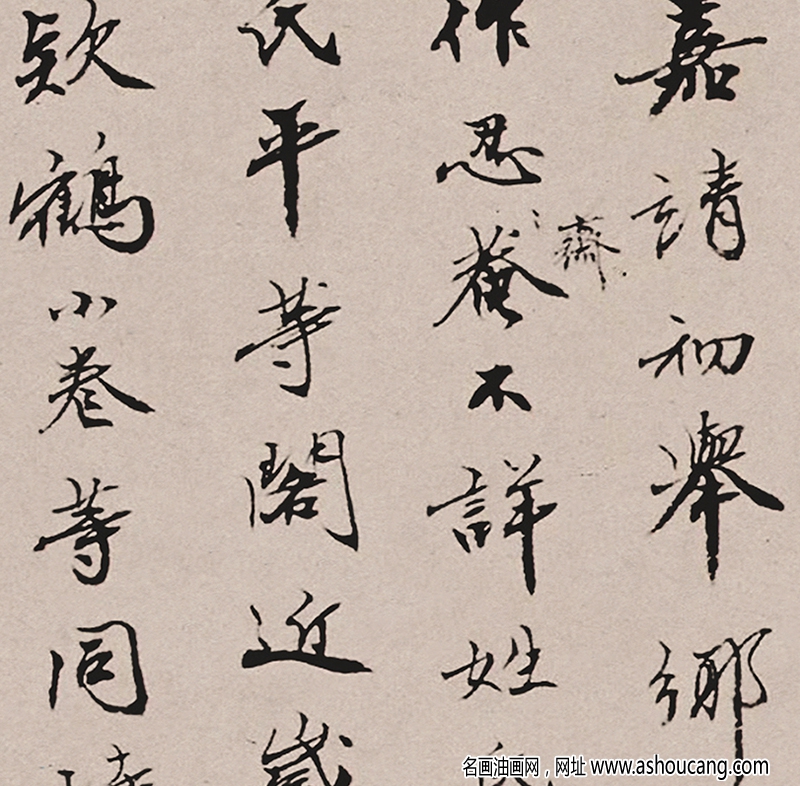 嘉靖初舉鄉
作忍菴不詳姓氏
齋
氏平等閣近歲
欵鶴小卷等同
名画油画网，网址 www.ashoucang.com